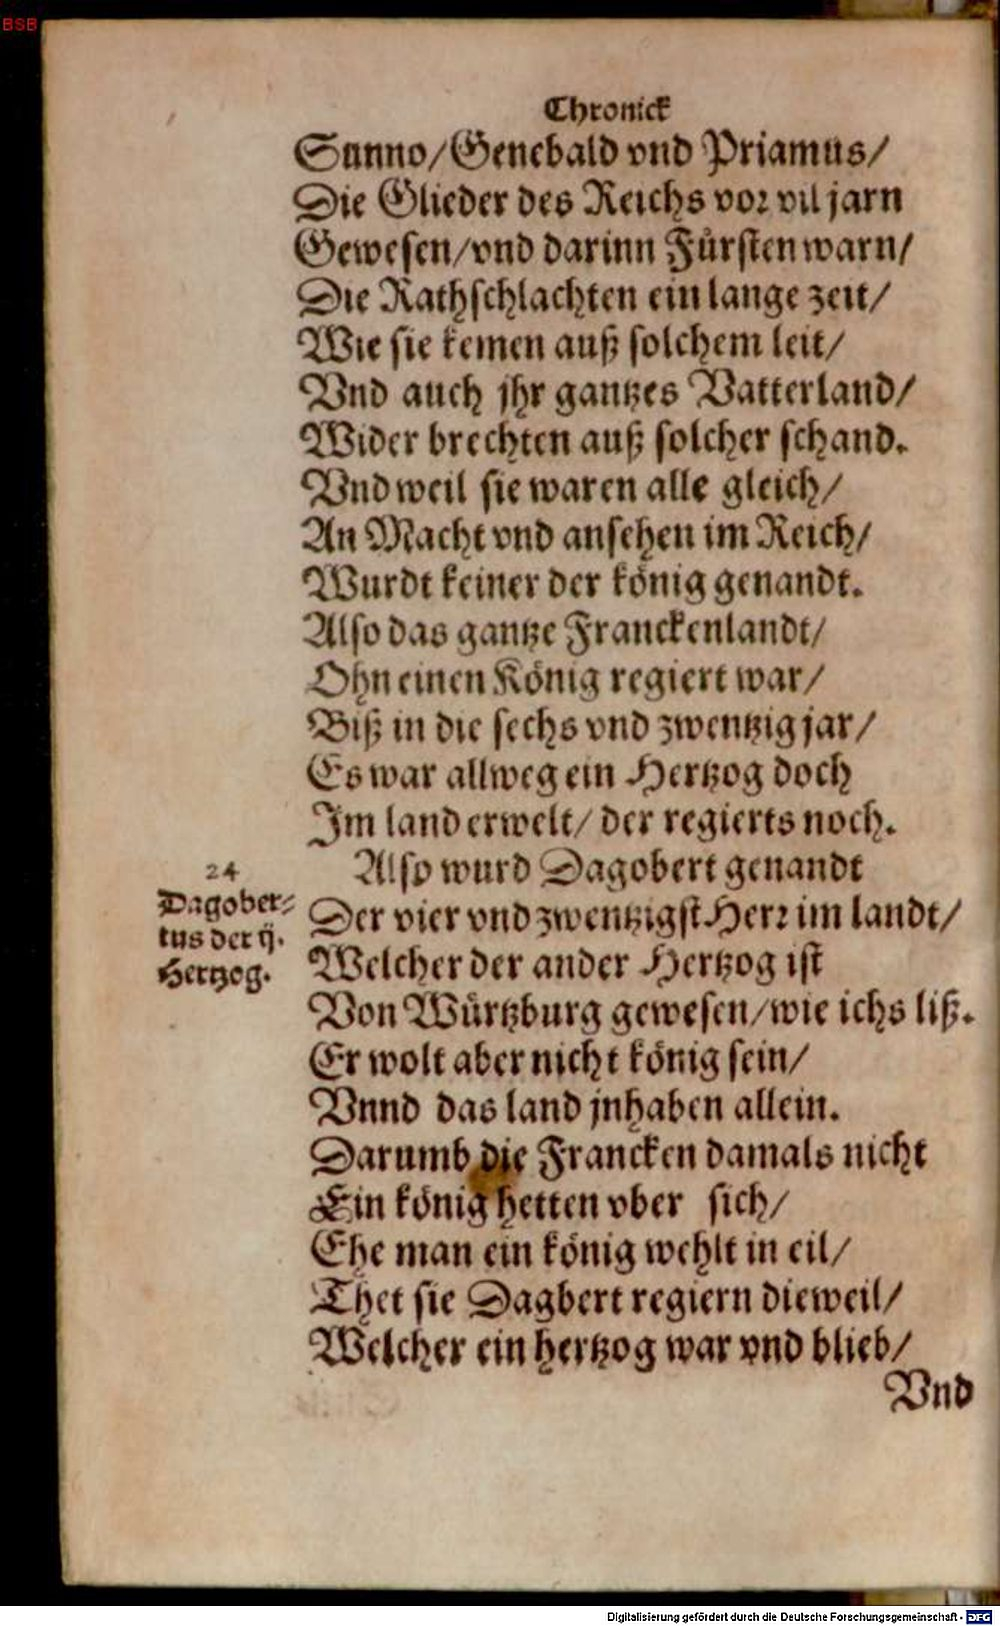 BSB
Chronick
Sunno/Genebald vnd Priamus/
Die Glieder des Reichs vor vil jarn
Gewesen/vnd darinn Fürsten warn/
Die Rathschlachten ein lange zeit/
Wie sie kemen auß solchem leit/
Vnd auch jhr gantzes Vatterland/
Wider brechten auß solcher schand.
Vnd weil sie waren alle gleich/
An Macht vnd ansehen im Reich/
Wurdt keiner der könig genandt.
Also das gantze Franckenlandt/
Ohn einen König regiert war/
Biß in die sechs vnd zwentzig jar/
Es war allweg ein Hertzog doch
Im land erwelt/ der regierts noch.
Also wurd Dagobert genandt
24
Dagober-
tus der ij.
Hertzog.
Der vier vnd zwentzigst Herr im landt/
Welcher der ander Hertzog ist
Von Würtzburg gewesen/wie ichs liß.
Er wolt aber nicht könig sein/
Vnnd das land jnhaben allein.
Darumb die Francken damals nicht
Ein könig hetten vber sich/
Ehe man ein könig wehlt in eil/
Thet sie Dagbert regiern dieweil/
Welcher ein hertzog war vnd blieb/
Vnd
Digitalisierung gefördert durch die Deutsche Forschungsgemeinschaft - DFG